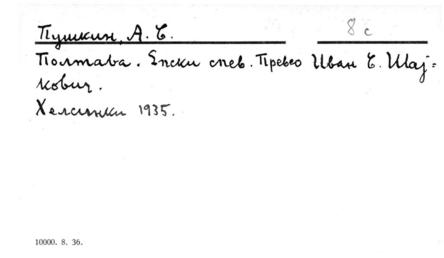 Пушкин, А. С.
8 с
Полтава. Епски спев. Превео Иван С. Шај=
ковић.
Хелсинки 1935.
10000. 8. 36.